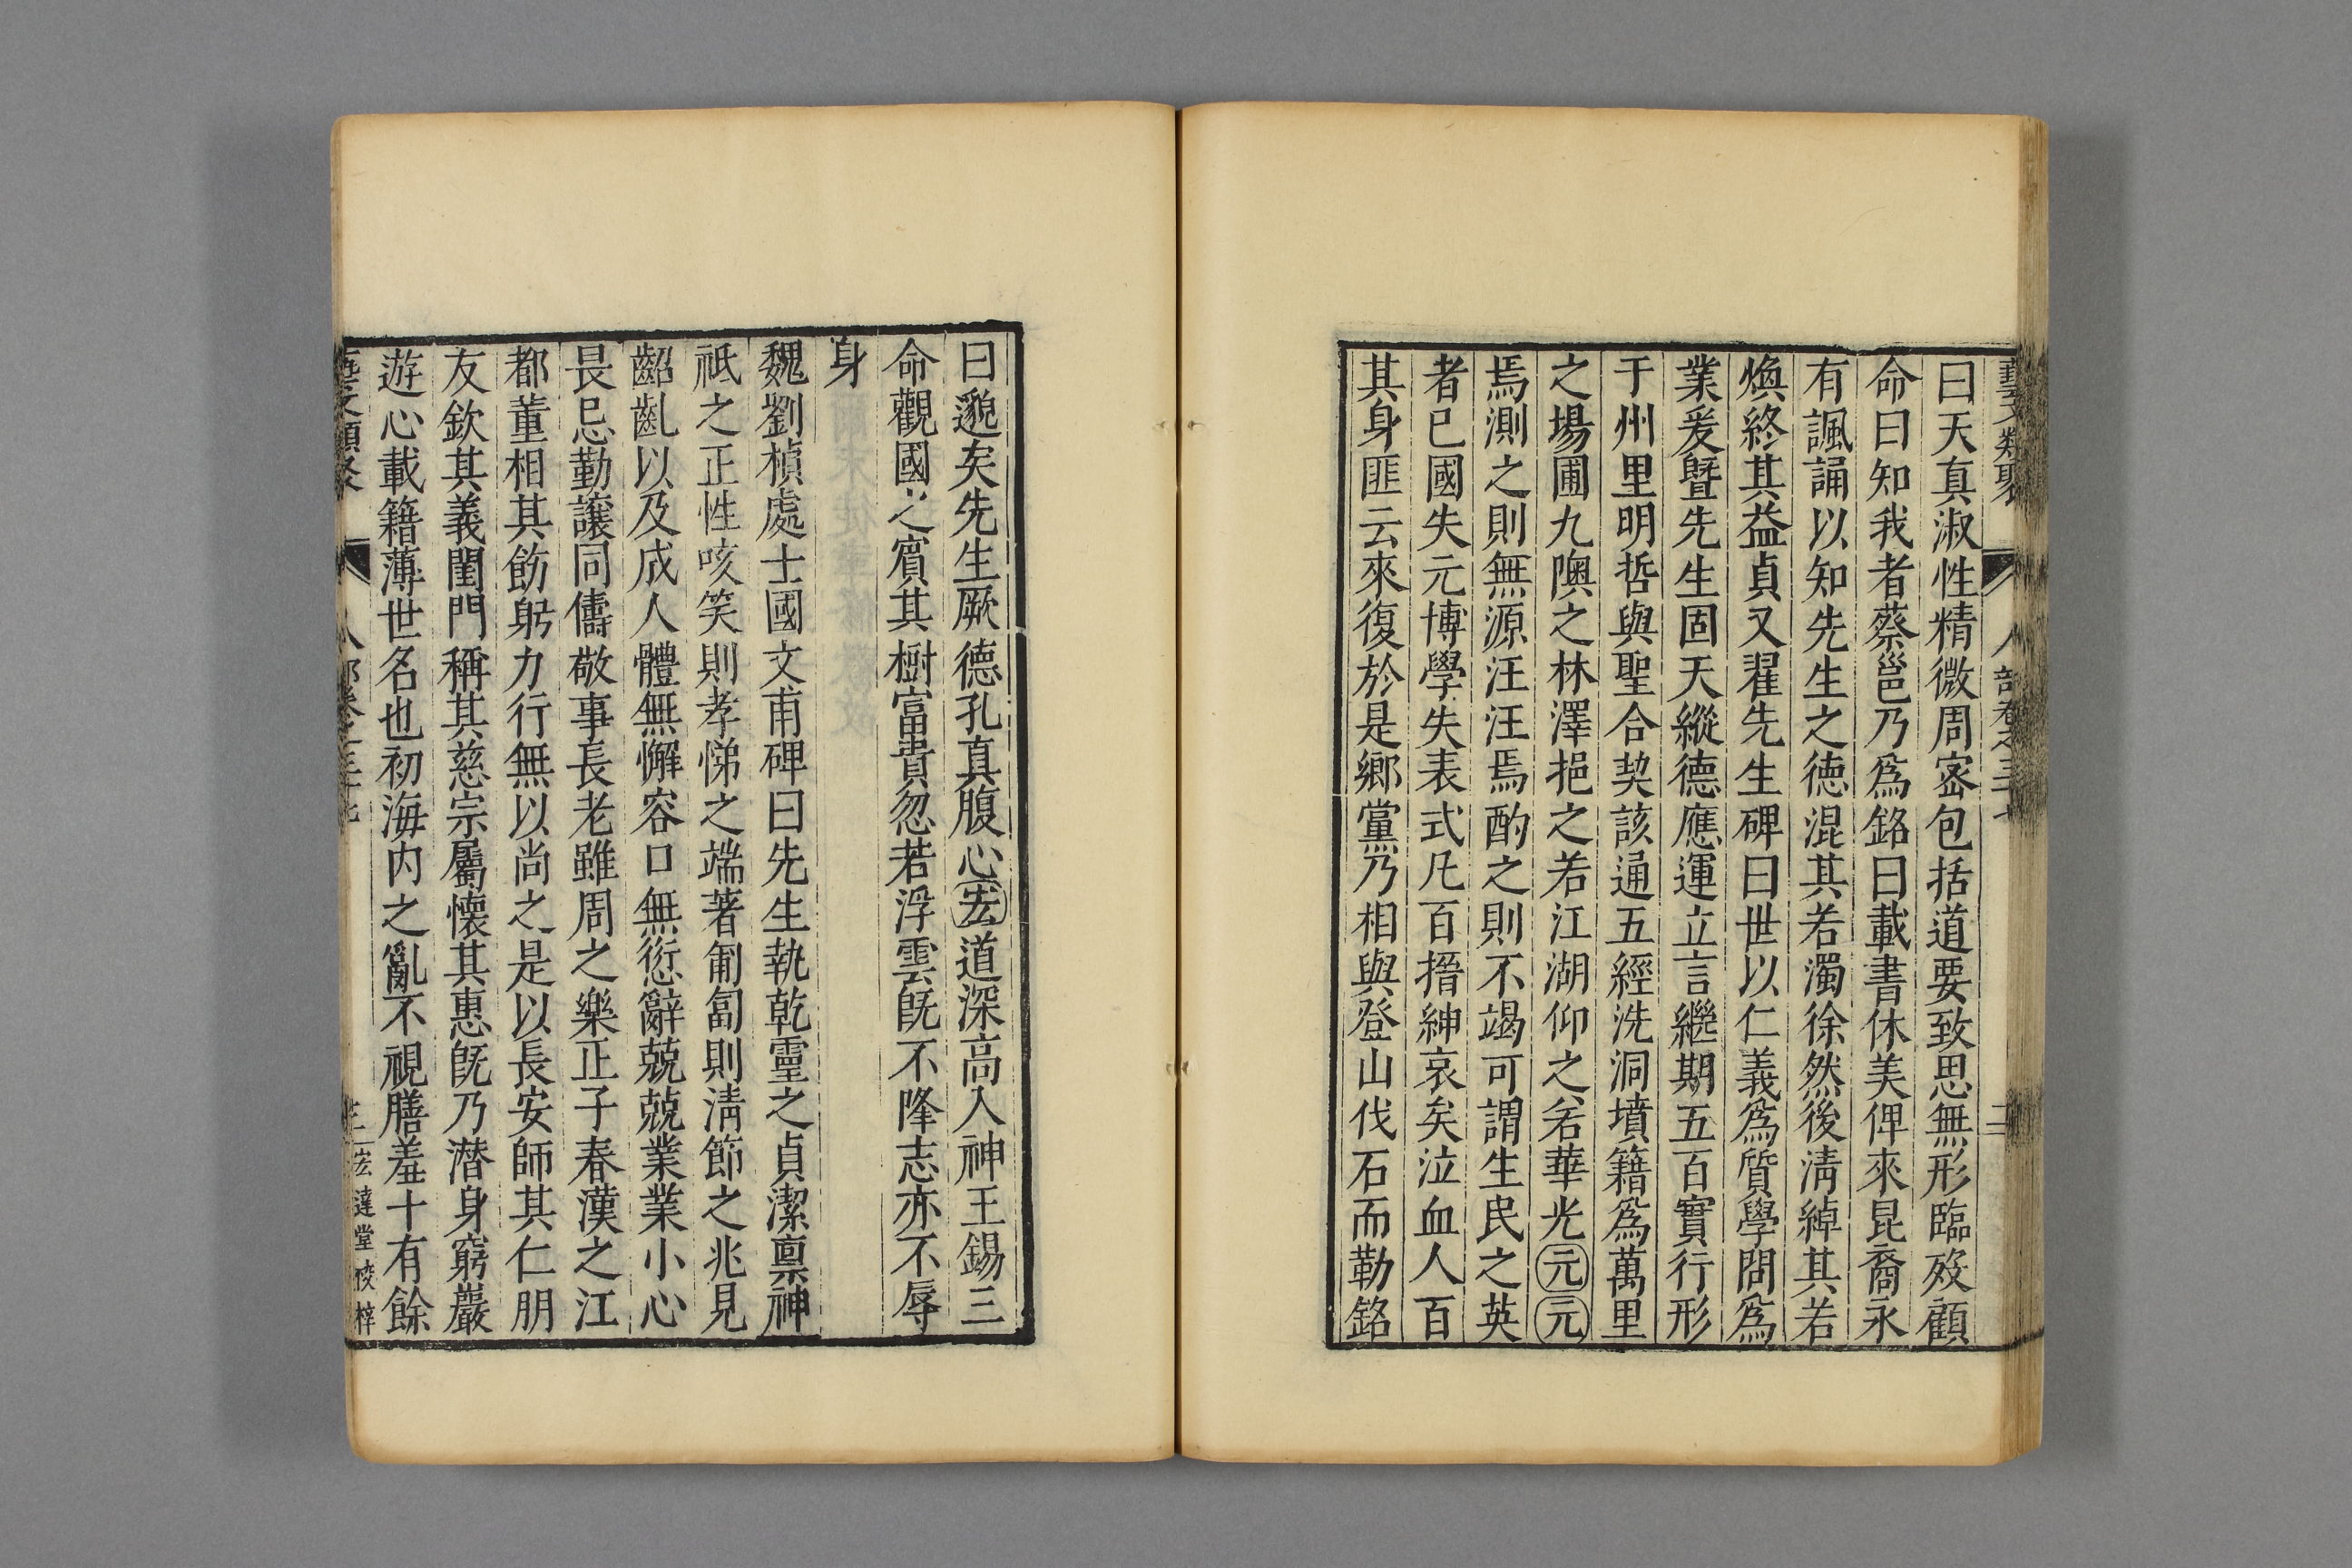 藝文類聚 人部卷之三十七 二
曰天真淑性精微周宻包括道要致思無形臨歿顧
命曰知我者蔡邕乃爲銘曰載書休美俾來昆裔永
有諷誦以知先生之德混其若濁徐然後淸綽其若
煥終其益貞又翟先生碑曰世以仁義爲質學問爲
業爰暨先生固天縱德應運立言繼期五百實行形
于州里明哲與聖合契該通五經洗洞墳籍爲萬里
之場圃九隩之林澤挹之若江湖仰之若華光元元
焉測之則無源汪汪焉酌之則不竭可謂生民之英
者已國失元博學失表式凡百搢紳哀矣泣血人百
其身匪云來復於是鄉黨乃相與登山伐石而勒銘
曰邈矣先生厥德孔真腹心宏道深高入神王錫三
命觀國之賓其樹富貴忽若浮雲旣不降志亦不辱
身
魏劉楨處士國文甫碑曰先生執乾靈之貞潔禀神
祇之正性咳笑則孝悌之端著匍匐則淸節之兆見
齠齓以及成人體無懈容口無愆辭兢兢業業小心
畏忌勤讓同儔敬事長老雖周之樂正子春漢之江
都董相其飭躬力行無以尚之是以長安師其仁朋
友欽其義閨門稱其慈宗屬懷其惠旣乃潛身窮巖
遊心載籍薄世名也初海内之亂不視膳羞十有餘
藝文類聚 人部卷之三十七 三 宏達堂校梓